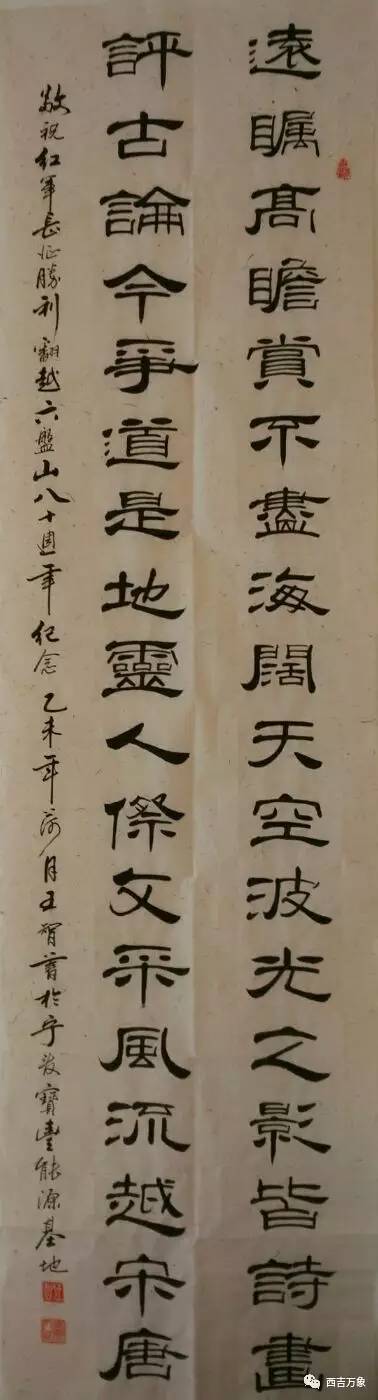 遠矚高瞻賞不盡海闊天空波光之影皆詩畫
評古論今爭道是地靈人傑文采風流越宋唐
敬祝红軍長征勝利翻越六盤山八十週年紀念 乙未年荷月王智書於宁夏寶豐能源基地
西吉万象